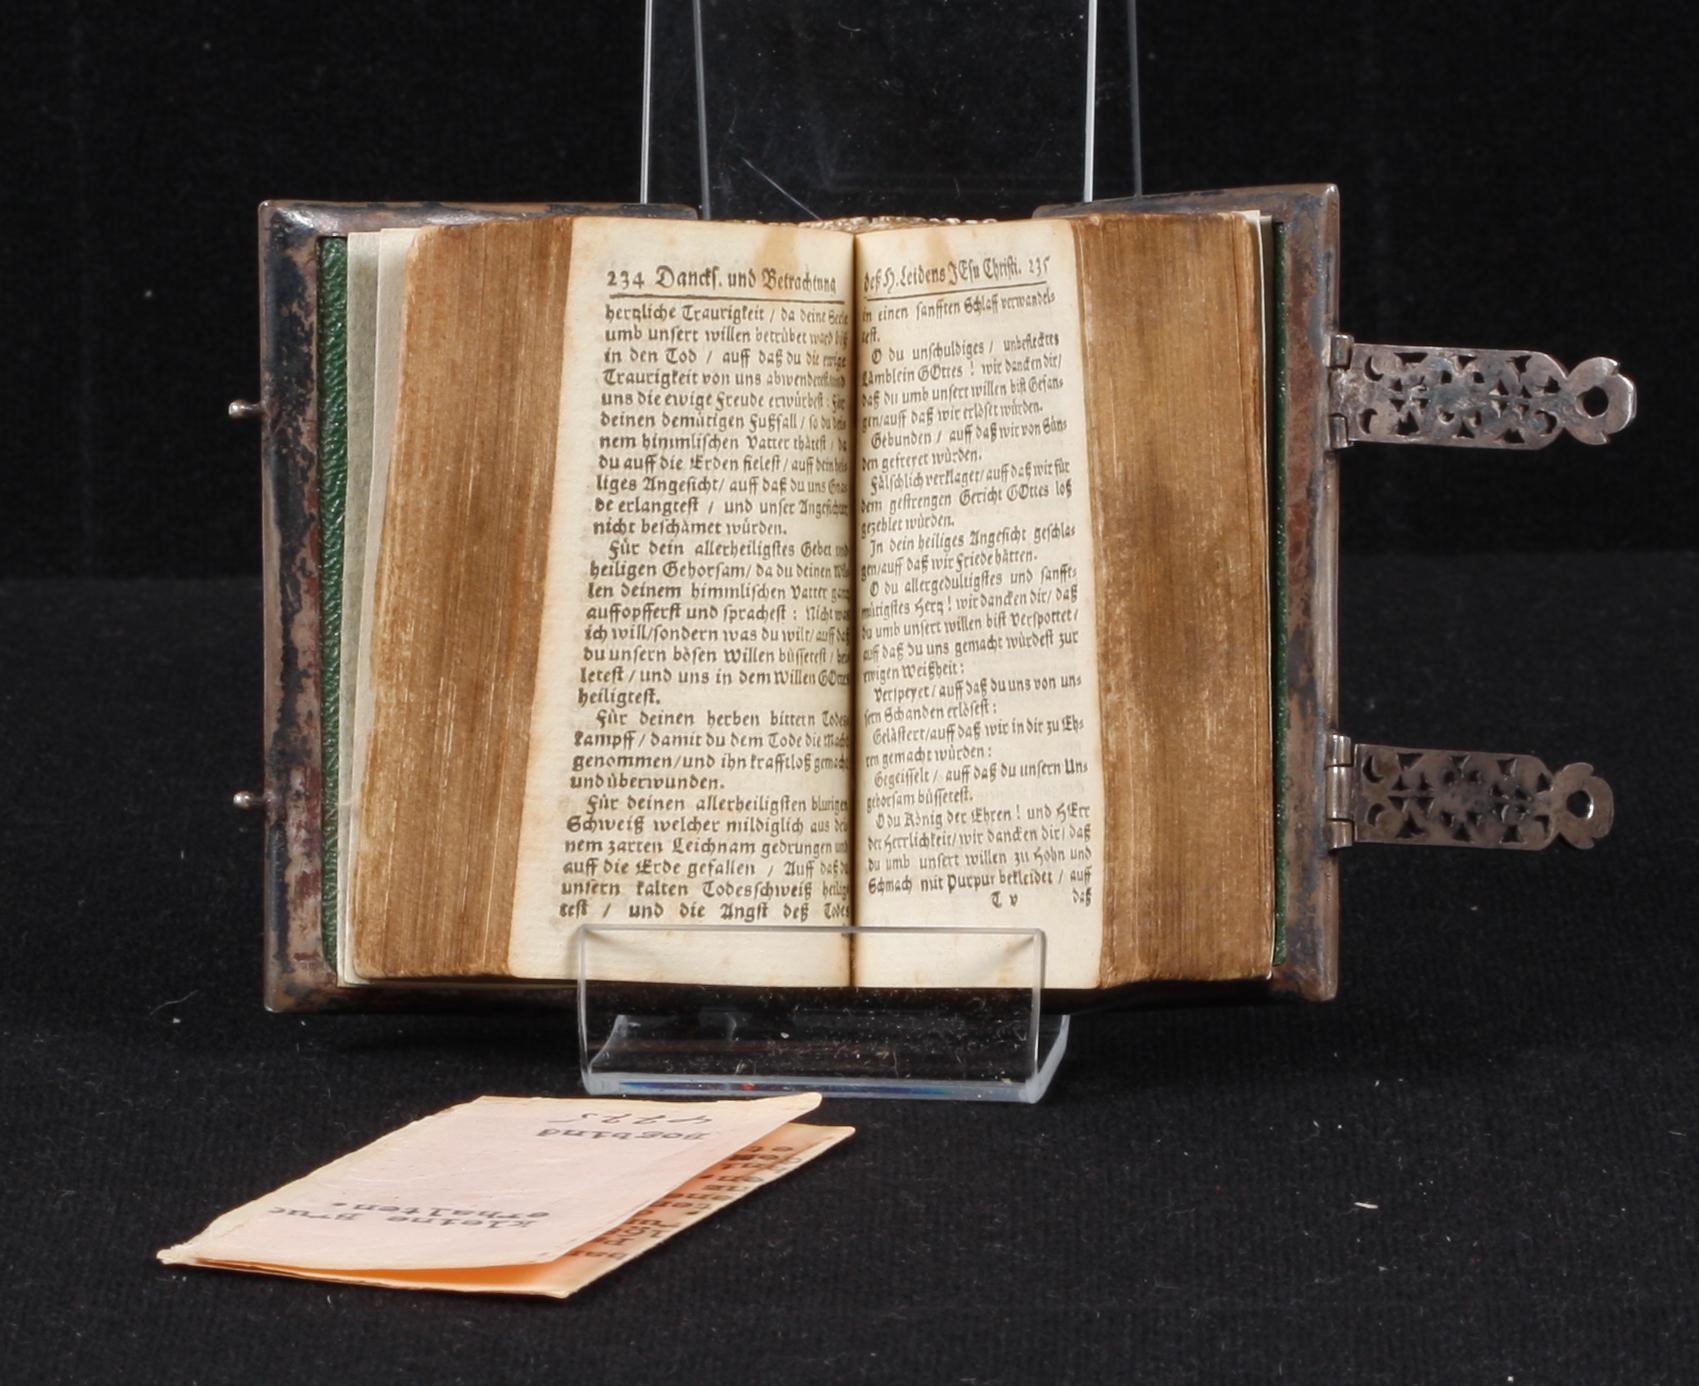 234 Dancks. und Betrachtung
hertzliche Traurigkeit / da deine Seele
umb unsert willen betrübet ward biß
in den Tod / auff daß du die ewige
Traurigkeit von uns abwendetest und
uns die ewige Freude erwürbest: Für
deinen demütigen Fußfall / so du dei-
nem himmlischen Vatter thätest / da
du auff die Erden fielest / auff dein hei-
liges Angesicht / auff daß du uns Gna-
de erlangtest / und unser Angesicht
nicht beschämet würden.
Für dein allerheiligstes Gebet und
heiligen Gehorsam / da du deinen Wil-
len deinem himmlischen Vatter gantz
auffopfferst und sprachest: Nicht was
ich will / sondern was du wilt / auff daß
du unsern bösen Willen büssetest /
letest / und uns in dem Willen GOttes
heiligtest.
Für deinen herben bittern Todes-
kampff / damit du dem Tode die Macht
genommen / und ihn krafftloß gemacht
und überwunden.
Für deinen allerheiligsten blutigen
Schweiß welcher mildiglich aus dei-
nem zarten Leichnam gedrungen und
auff die Erde gefallen / Auff daß du
unsern kalten Todesschweiß heilig-
test / und die Angst deß Todes
deß H. Leidens JEsu Christi. 235
in einen sanfften Schlaff verwandel-
test.
O du unschuldiges / unbeflecktes
Lämblein GOttes ! wir dancken dir /
daß du umb unsert willen bist Gefan-
gen / auff daß wir erlöset würden.
Gebunden / auff daß wir von Sün-
den gefreyet würden.
Fälschlich verklaget / auff daß wir für
dem gestrengen Gericht GOttes loß
gezehlet würden.
In dein heiliges Angesicht geschla-
gen / auff daß wir Friede hätten.
O du allergedultigstes und sanfft-
mütigstes Hertz ! wir dancken dir / daß
du umb unsert willen bist Verspottet /
auff daß du uns gemacht würdest zur
ewigen Weißheit:
Verspeyet / auff daß du uns von un-
sern Schanden erlösest:
Gelästert / auff daß wir in dir zu Eh-
ren gemacht würden:
Gegeisselt / auff daß du unsern Un-
gehorsam büssetest.
O du König der Ehren ! und HErr
der Herrlichkeit / wir dancken dir / daß
du umb unsert willen zu Hohn und
Schmach mit Purpur bekleidet / auff
T v daß
kleine
erhalten.